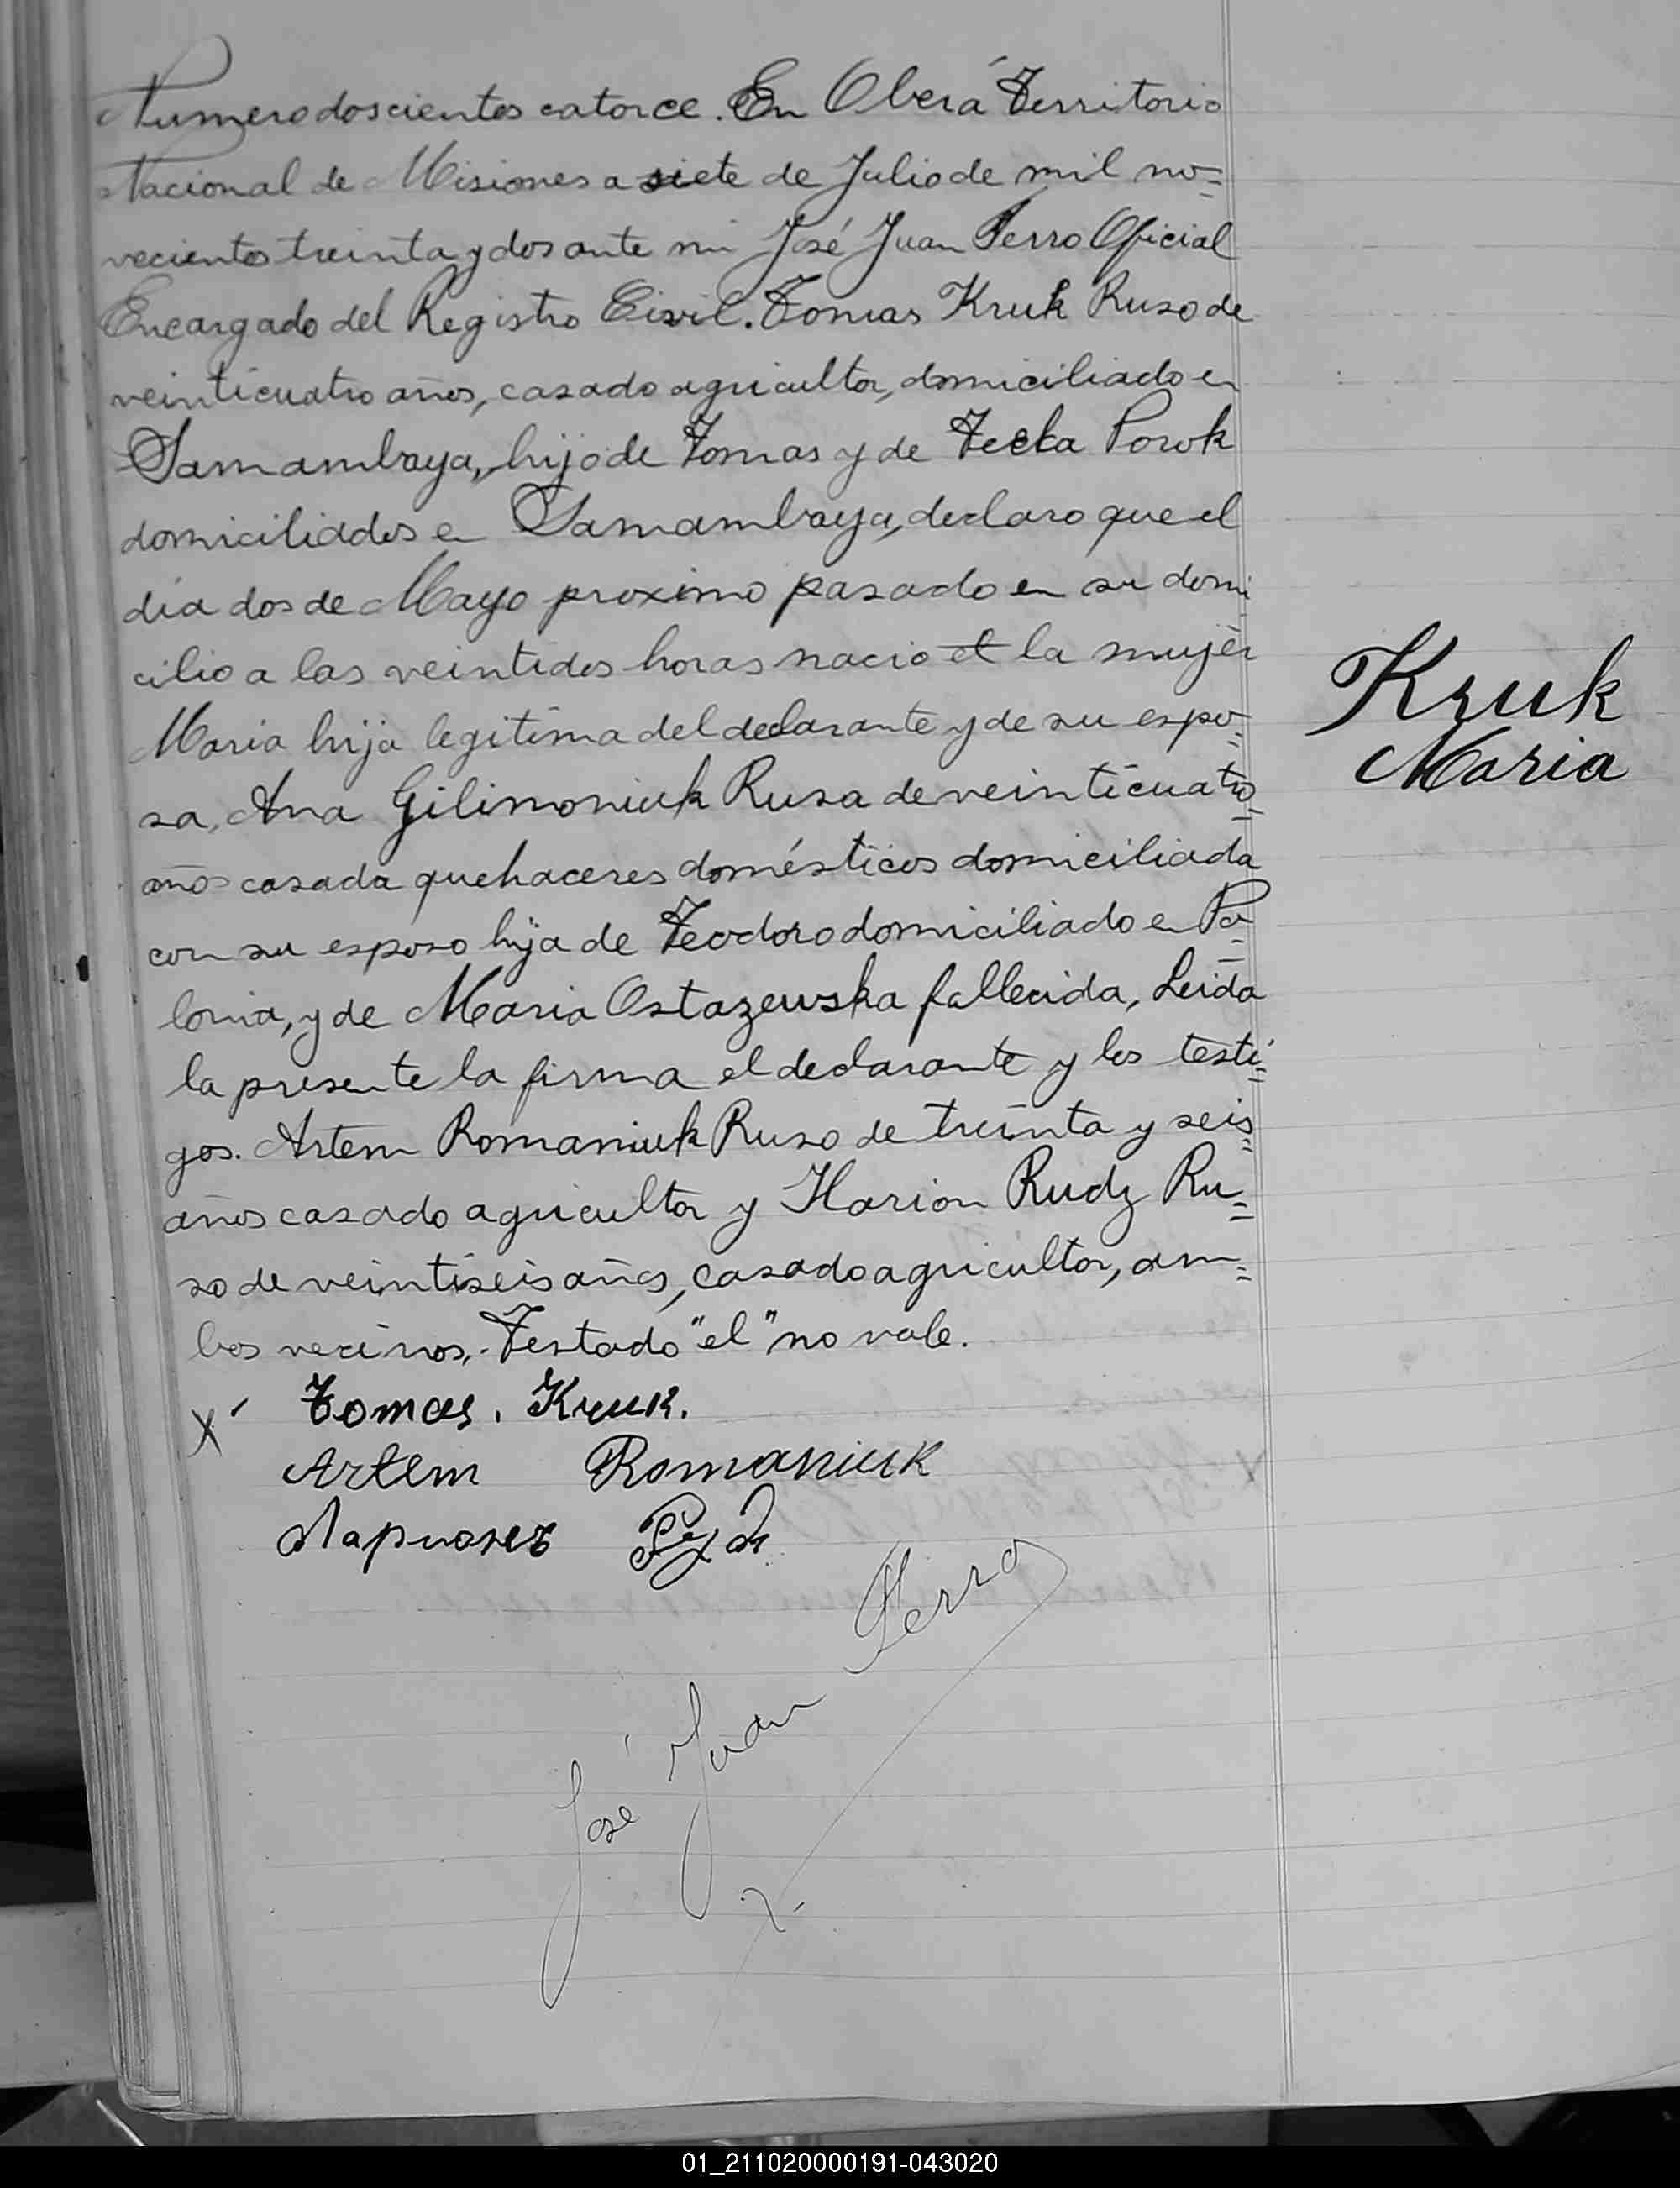 Numero doscientos catorce. En Oberá Territorio
Nacional de Misiones a siete de Julio de mil no=
vecientos treinta y dos ante mi José Juan Ferro Oficial
Encargado del Registro Civil. Tomas Kruk Ruso de
veinticuatro años, casado agricultor, domiciliado en
Samambaya, hijo de Tomas y de Tecla Powk
domiciliados en Samambaya, declaro que el
dia dos de Mayo proximo pasado en su domi
cilio a las veintidos horas nacio el la mujer
Maria hija legitima del declarante y de su espo=
sa, Ana Gilimoniuk Rusa de veinticuatro
años casada quehaceres domésticos domiciliada
con su esposo hija de Teodoro domiciliado en Po=
lonia, y de Maria Ostazewska fallecida, Leida
la presente la firma el declarante y los testi=
gos. Artem Romaniuk Ruso de treinta y seis
años casado agricultor y Harion Rudz Ru=
so de veintiseis años, casado agricultor, am=
bos vecinos,. Testado "el" no vale.
Kruk
Maria
X Tomas. Kruk.
Artem Romaniuk
José Juan Ferro
01_211020000191-043020